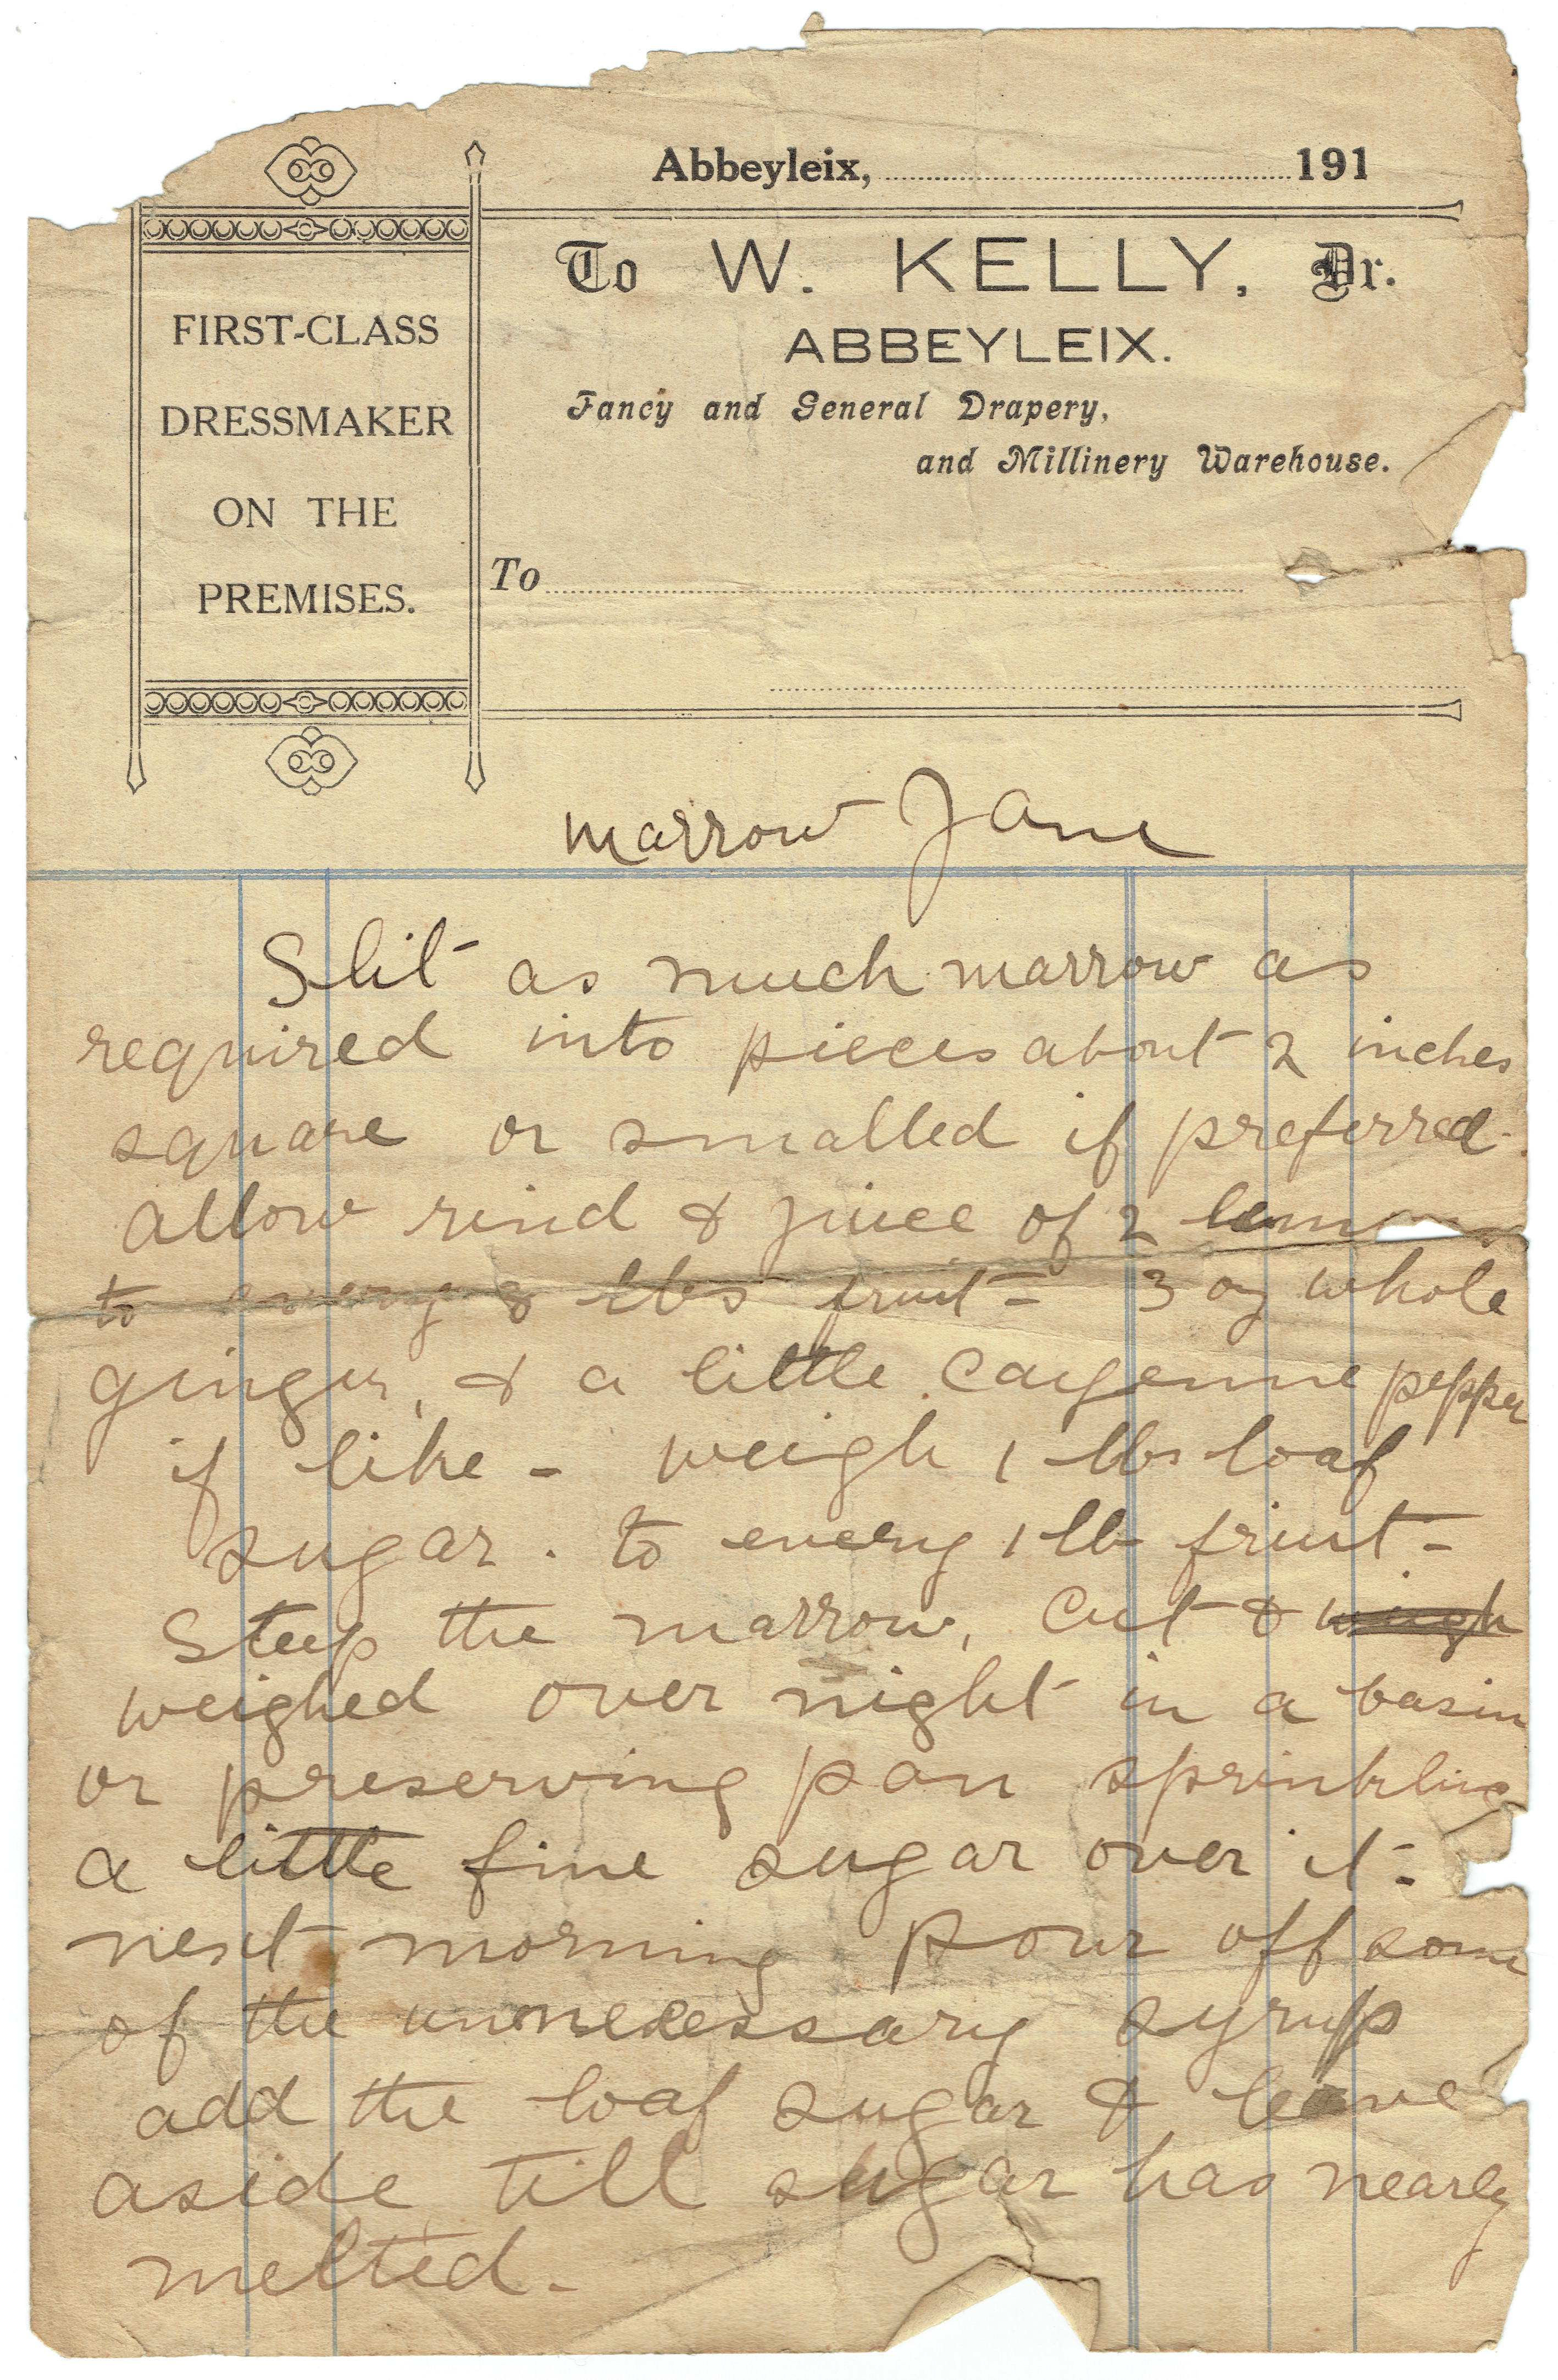 Abbeyleix, 191
To W. KELLY, Dr.
ABBEYLEIX.
Fancy and General Drapery,
and Millinery Warehouse.
FIRST-CLASS
DRESSMAKER
ON THE
PREMISES.
To
marrow Jam
Slit as much marrow as
required into pieces about 2 inches
square or smalled if preferred.
allow rind & juice of 2 lemons
to every 8 lbs fruit - 3 oz whole
ginger, & a little cayenne pepper
if like - weigh 1 lbs loaf
sugar. to every 1 lb fruit -
Steep the marrow, cut & weigh
weighed over night in a basin
or preserving pan sprinkling
a little fine sugar over it -
next morning pour off some
of the unnecessary syrup
add the loaf sugar & leave
aside till sugar has nearly
melted -